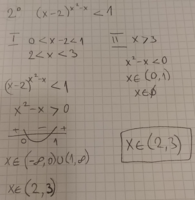 2° (x-2)^{x²-x} < 1
I 0 < x-2 < 1
2 < x < 3
(x-2)^{x²-x} < 1
x²-x > 0
+ - +
0 1
x∈(-∞,0)∪(1,∞)
x∈(2,3)
II x>3
x²-x<0
x∈(0,1)
x∈∅
x∈(2,3)